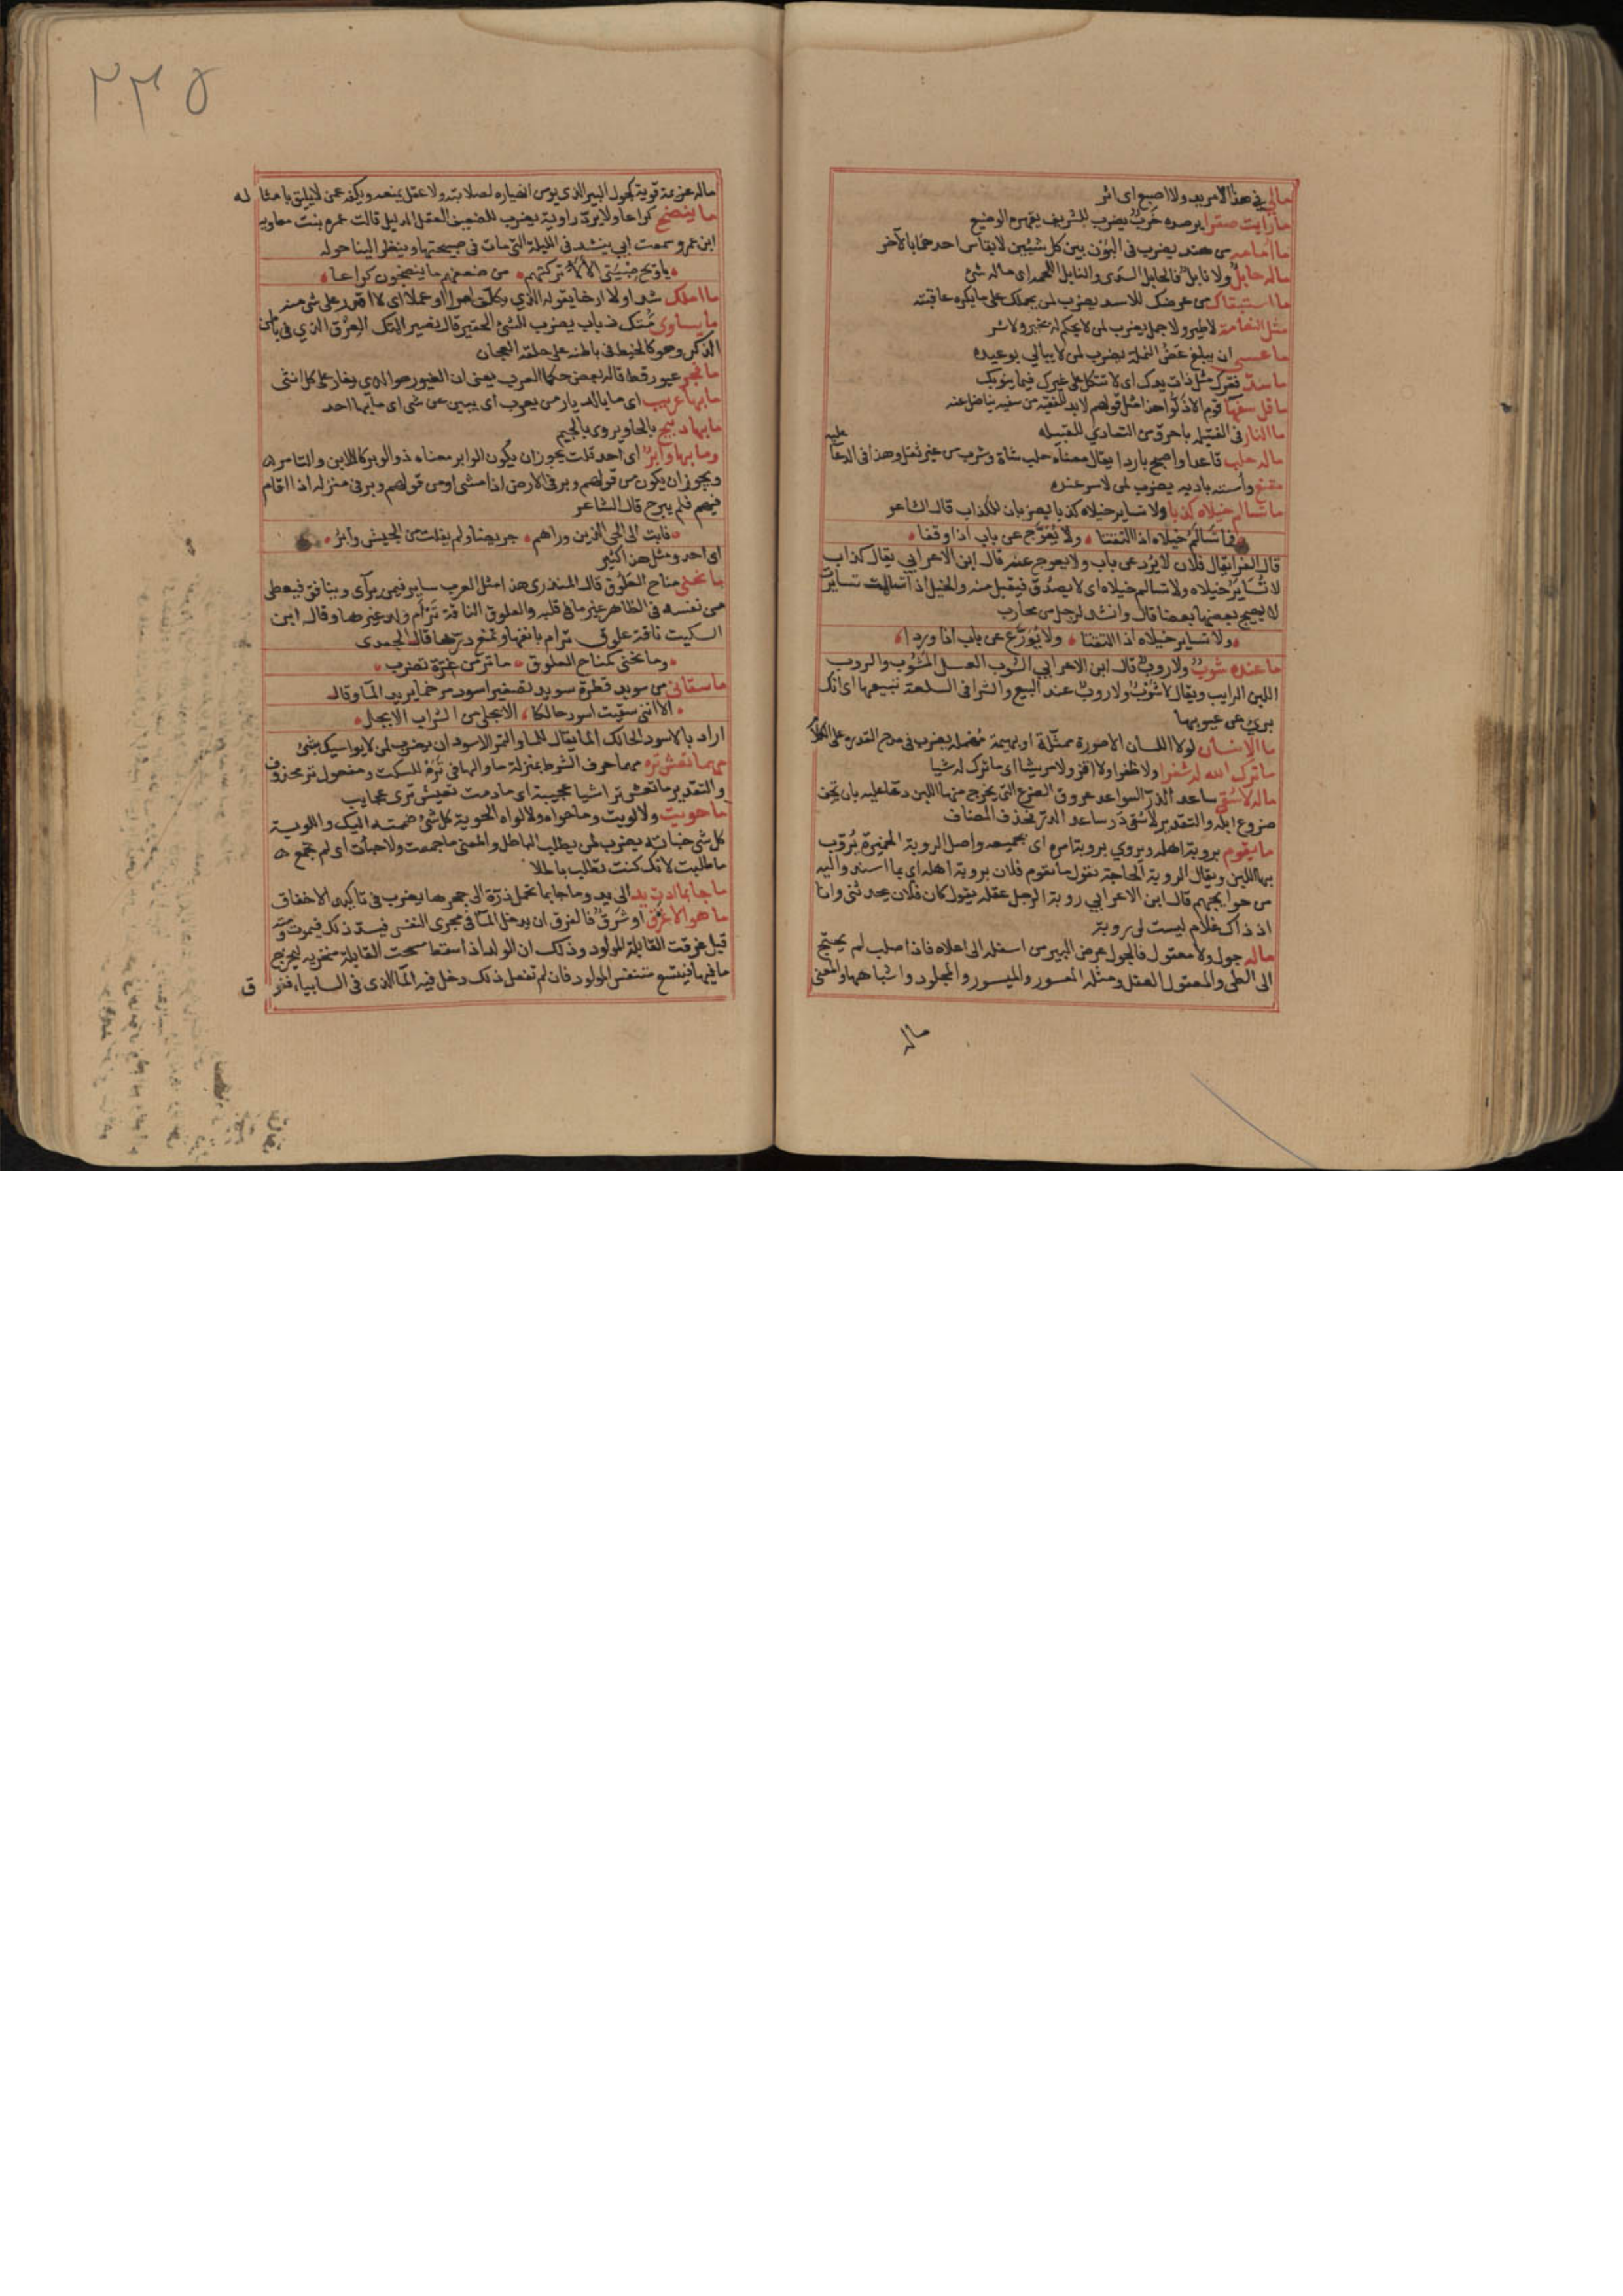 مالي في هذا الامر يد ولا اصبع اى اثر
ما رايت صقرا يرصده خَرَبٌ يضرب للشريف يقهره الوضيع
ما امامه من هند يضرب فى البَوْن بين كل شيئين لا يقاس احدهما بالآخر
ماله حابل ولا نابل فالحابل السدى والنابل اللحمه اى ماله شئ
ما استبقاك من عرضك للاسد يضرب لمن يحملك على ما يكره عاقبته
مثل النعامة لا طير ولا جمل يضرب لمن لا يحكم له بخير ولا شر
ما عسى ان يبلغ عَضُّ النملة يضرب لمن لا يبالي بوعيده
ما سدّ فقرك مثل ذات يدك اى لا تتكل على غيرك فيما ينوبك
ما قل سفهآ قوم الا ذَلّوا هذا مثل قولهم لابد للفقيه من سفيه يناضل عنه
ما النار فى الفتيله باحرق من التعادي للقبيله
ماله حلب قاعدا واصبح باردا يقال معناه حلب شاة وشرب من غير ثفل وهذا فى الدعآ عليه
مقنع واسته باديه يضرب لمن لا سر عنده
ما تسالم خيلاه كذبا ولا تساير خيلاه كذبا يضربان للكذاب قال الشاعر
فما تَسَالَمُ خيلاه اذا التقتا • ولا يُعَرَّج عن باب اذا وقفا •
قال الفرا يقال فلان لا يُرَد عن باب ولا يعوج عنه قال ابن الاعرابي يقال كذاب
لا تُسَايَر خيلاه ولا تسالم خيلاه اى لا يصدّق فيقبل منه والخيل اذا تسالمت تسايرت
لا يهيج بعضها بعضا قال وانشد لرجل من محارب
• ولا تساير خيلاه اذا التقتا • ولا يُوَرَّع عن باب اذا وردا •
ما عنده شوبٌ ولا روب قال ابن الاعرابي الشوب العسل المَشُوب والروب
اللبن الرايب ويقال لا شَوْبٌ ولا روبٌ عند البيع والشرا فى السلعة تبيعها اى انك
برئ من عيوبها
ما الانسان لولا اللسان الا صورة ممثَّلة او بهيمة مُهْمَله يضرب فى مدح القدره على الكلام
ما ترك الله له شفرا ولا ظفرا ولا اقذ ولا مريشا اى ما ترك له شيا
ماله لا سُقى ساعد الدَرّ السواعد عروق الضرع التى يخرج منها اللبن دعا عليه بان يجف
ضروع ابله والتقدير لا سُقى دَر ساعد الدر فحذف المضاف
ما يقوم بروبة اهله ويروي بروبة امره اى بجميعه واصل الروبة الخميرة يُروَّب
بها اللبن ويقال الروبة الحاجة تقول ما يقوم فلان بروبة اهله اى بما اسندوا اليه
من حوايجهم قال ابن الاعرابي روبة الرجل عقله يقول كان فلان يحدثنى وانا
اذ ذاك غلام ليست لى روبة
ماله جول ولا معقول فالجول عرض البير من اسفله الى اعلاه فاذا صلب لم يحتج
الى الطى والمعقول العقل ومثله المعسور والميسور والمجلود واشباهها والمعنى
ماله
٢٣٥
ماله عزيمة قوية كجول البير الذى يؤمن انهياره لصلابته ولا عقل يمنعه ويكفه عمن لا يليق بامثاله
ما ينضج كراعا ولا يردّ راوية يضرب للضعيف العقل الذليل قالت عمره بنت معاويه
ابن عمرو سمعت ابي ينشد فى الليلة التى مات فى صبيحتها وينظر الينا حوله
• يا ويح صبيتى الاُلى تركتهم • من ضعفهم ما ينضجون كراعا •
ما املك شدا ولا ارخا يقوله الذي يكلف امرا او عملا اى لا اقدر على شى منه
ما يساوى مُتك ذباب يضرب للشئ الحقير قال نصير المتك العِرْق الذي فى باطن
الذكر وهو كالخيط فى باطنه على حلقة العجان
ما فجر غيور قط قاله بعض حكما العرب يعنى ان الغيور هو الذى يغار على كل انثى
ما بها عريب اى ما بالديار من يعرب اى يبين عن شى اى ما بها احد
ما بها دبيح بالحا ويروى بالجيم
وما بها وابرٌ اى احد قلت يجوز ان يكون الوابر معناه ذو الوبر كاللابن والتامر
ويجوز ان يكون من قولهم وبر فى الارض اذا مشى او من قولهم وبر فى منزله اذا اقام
فيهم فلم يبرح قال الشاعر
• فابت الى الحى الذين وراهم • جريضا ولم يفلت من الجيش وابرُ •
اى احد ومثل هذا كثير
ما نحنى مناح العَلُوق قال المنذرى هذا مثل للعرب ساير فيمن يرآى وينافق فيعطى
من نفسه فى الظاهر غير ما فى قلبه والعلوق الناقة تَرْأم ولد غيرها وقال ابن
السكيت ناقة علوق ترام بانفها وتمنع درتها قال الجعدى
• وما نحنى كمناح العلوق • ما تر من غِرّة تضرب •
ما سقانى من سويد قطرة سويد تصغير اسود مرخما يريد المآ وقال
• الا اننى سقيت اسود حالكا • الا بجلى من الشراب الا بجل •
اراد بالاسود الحالك المآ يقال للما والتمر الاسودان يضرب لمن لا يواسيك بشئ
مهما تعش تره مهما حرف الشرط بمنزلة ما والها فى تَرَه للسكت ومفعول تر محذوف
والتقدير ما تعش تر اشيا عجيبة اى ما دمت تعيش ترى عجايب
ما حويت ولا لويت وما حواه ولا لواه الحوية كل شئ ضممته اليك واللوية
كل شى خبأته يضرب لمن يطلب الباطل والمعنى ما جمعت ولا خبأت اى لم تجمع
ما طلبت لانك كنت تطلب باطلا
ما جا بما ادت يد الى يد وما جا بما تحمل ذرّة الى جحرها يضرب فى تاكيد الاخفاق
ما هو الا غَرَق او شَرَق فالغرق ان يدخل المآ فى مجرى النفس فيسده ذلك فيموت ومنه
قيل غرقت القابلة المولود وذلك ان الولد اذا سقط مسحت القابلة منخريه ليخرج
ما فيهما فيتسع متنفس المولود فان لم تفعل ذلك دخل فيه المآ الذى فى السابياء فغرق